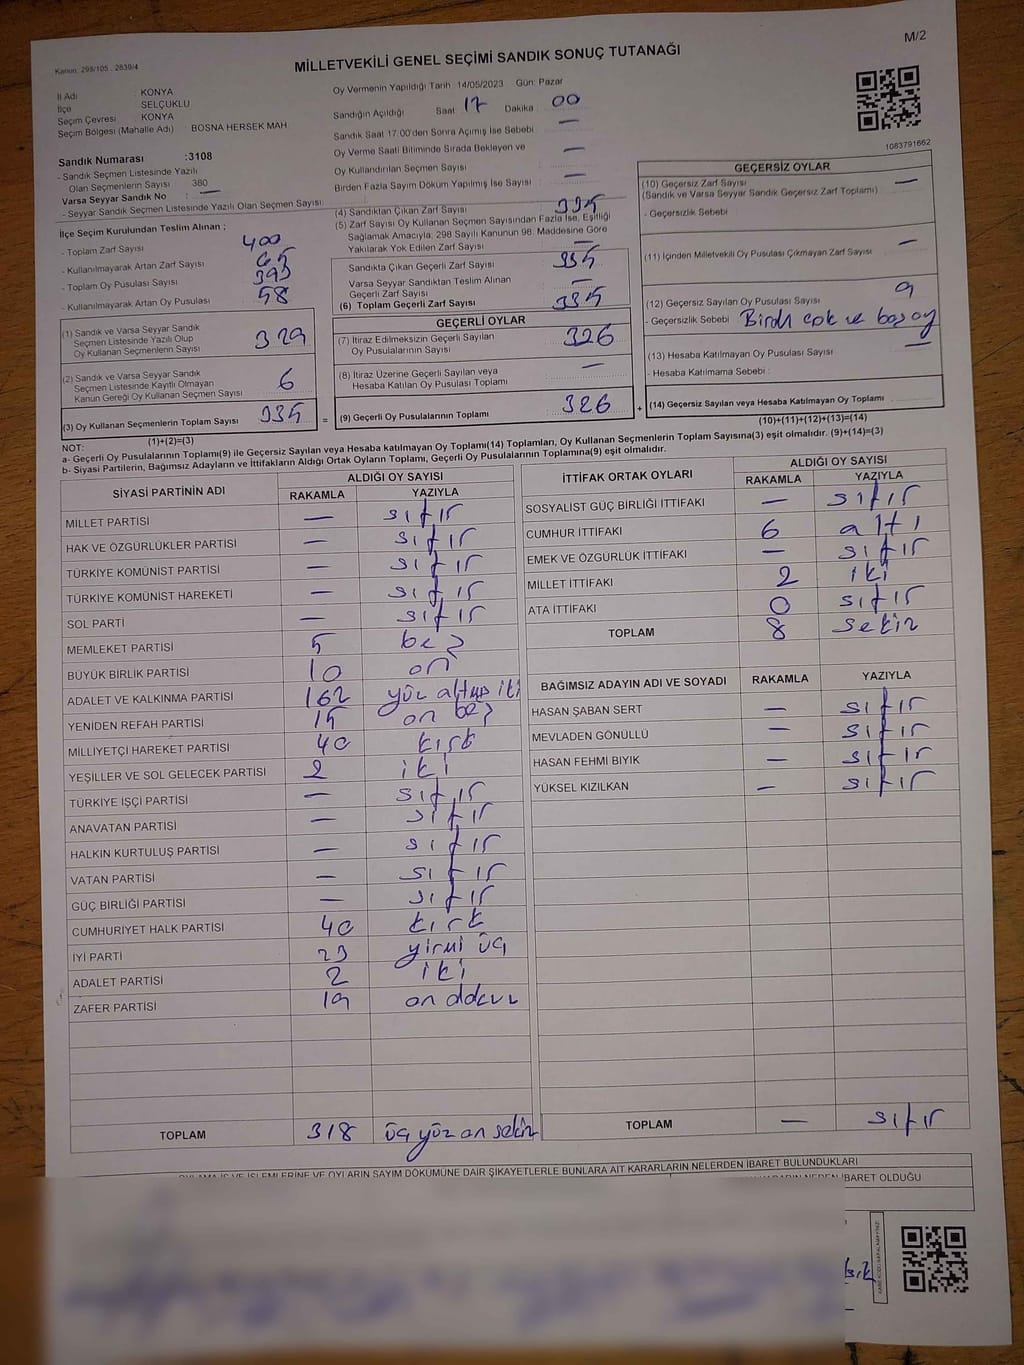 M/2
Kanun: 298/105 . 2839/4
MİLLETVEKİLİ GENEL SEÇİMİ SANDIK SONUÇ TUTANAĞI
İl Adı : KONYA
İlçe : SELÇUKLU
Seçim Çevresi : KONYA
Seçim Bölgesi (Mahalle Adı) : BOSNA HERSEK MAH
Sandık Numarası :3108
- Sandık Seçmen Listesinde Yazılı
Olan Seçmenlerin Sayısı : 380
Varsa Seyyar Sandık No : —
- Seyyar Sandık Seçmen Listesinde Yazılı Olan Seçmen Sayısı:
Oy Vermenin Yapıldığı Tarih :14/05/2023 Gün: Pazar
Sandığın Açıldığı Saat : 17 Dakika : 00
Sandık Saat 17:00'den Sonra Açmış İse Sebebi : —
Oy Verme Saati Bitiminde Sırada Bekleyen ve
Oy Kullandırılan Seçmen Sayısı : —
Birden Fazla Sayım Döküm Yapılmış İse Sayısı : —
1083791662
İlçe Seçim Kurulundan Teslim Alınan ;
- Toplam Zarf Sayısı : 400
- Kullanılmayarak Artan Zarf Sayısı : 65
- Toplam Oy Pusulası Sayısı : 393
- Kullanılmayarak Artan Oy Pusulası : 58
(1) Sandık ve Varsa Seyyar Sandık
Seçmen Listesinde Yazılı Olup
Oy Kullanan Seçmenlerin Sayısı 329
(2) Sandık ve Varsa Seyyar Sandık
Seçmen Listesinde Kayıtlı Olmayan
Kanun Gereği Oy Kullanan Seçmen Sayısı 6
(3) Oy Kullanan Seçmenlerin Toplam Sayısı 335
(1)+(2)=(3)
(4) Sandıktan Çıkan Zarf Sayısı : 335
(5) Zarf Sayısı Oy Kullanan Seçmen Sayısından Fazla İse, Eşitliği
Sağlamak Amacıyla; 298 Sayılı Kanunun 98. Maddesine Göre
Yakılarak Yok Edilen Zarf Sayısı : —
Sandıkta Çıkan Geçerli Zarf Sayısı : 335
Varsa Seyyar Sandıktan Teslim Alınan
Geçerli Zarf Sayısı : —
(6) Toplam Geçerli Zarf Sayısı : 335
GEÇERLİ OYLAR
(7) İtiraz Edilmeksizin Geçerli Sayılan
Oy Pusulalarının Sayısı : 326
(8) İtiraz Üzerine Geçerli Sayılan veya
Hesaba Katılan Oy Pusulası Toplamı : —
= (9) Geçerli Oy Pusulalarının Toplamı : 326 +
GEÇERSİZ OYLAR
(10) Geçersiz Zarf Sayısı : —
(Sandık ve Varsa Seyyar Sandık Geçersiz Zarf Toplamı)
- Geçersizlik Sebebi :
(11) İçinden Milletvekili Oy Pusulası Çıkmayan Zarf Sayısı : —
(12) Geçersiz Sayılan Oy Pusulası Sayısı : 9
- Geçersizlik Sebebi : Birden çok ve boş oy
(13) Hesaba Katılmayan Oy Pusulası Sayısı : —
- Hesaba Katılmama Sebebi :
(14) Geçersiz Sayılan veya Hesaba Katılmayan Oy Toplamı :
(10)+(11)+(12)+(13)=(14)
NOT:
a- Geçerli Oy Pusulalarının Toplamı(9) ile Geçersiz Sayılan veya Hesaba katılmayan Oy Toplamı(14) Toplamları, Oy Kullanan Seçmenlerin Toplam Sayısına(3) eşit olmalıdır. (9)+(14)=(3)
b- Siyasi Partilerin, Bağımsız Adayların ve İttifakların Aldığı Ortak Oyların Toplamı, Geçerli Oy Pusulalarının Toplamına(9) eşit olmalıdır.
SİYASİ PARTİNİN ADI ALDIĞI OY SAYISI
RAKAMLA YAZIYLA
MİLLET PARTİSİ — sıfır
HAK VE ÖZGÜRLÜKLER PARTİSİ — sıfır
TÜRKİYE KOMÜNİST PARTİSİ — sıfır
TÜRKİYE KOMÜNİST HAREKETİ — sıfır
SOL PARTİ — sıfır
MEMLEKET PARTİSİ 5 beş
BÜYÜK BİRLİK PARTİSİ 10 on
ADALET VE KALKINMA PARTİSİ 162 yüz altmış iki
YENİDEN REFAH PARTİSİ 15 on beş
MİLLİYETÇİ HAREKET PARTİSİ 40 kırk
YEŞİLLER VE SOL GELECEK PARTİSİ 2 iki
TÜRKİYE İŞÇİ PARTİSİ — sıfır
ANAVATAN PARTİSİ — sıfır
HALKIN KURTULUŞ PARTİSİ — sıfır
VATAN PARTİSİ — sıfır
GÜÇ BİRLİĞİ PARTİSİ — sıfır
CUMHURİYET HALK PARTİSİ 40 kırk
İYİ PARTİ 23 yirmi üç
ADALET PARTİSİ 2 iki
ZAFER PARTİSİ 19 on dokuz
TOPLAM 318 üç yüz on sekiz
İTTİFAK ORTAK OYLARI ALDIĞI OY SAYISI
RAKAMLA YAZIYLA
SOSYALİST GÜÇ BİRLİĞİ İTTİFAKI — sıfır
CUMHUR İTTİFAKI 6 altı
EMEK VE ÖZGÜRLÜK İTTİFAKI — sıfır
MİLLET İTTİFAKI 2 iki
ATA İTTİFAKI 0 sıfır
TOPLAM 8 sekiz
BAĞIMSIZ ADAYIN ADI VE SOYADI RAKAMLA YAZIYLA
HASAN ŞABAN SERT — sıfır
MEVLADEN GÖNÜLLÜ — sıfır
HASAN FEHMİ BIYIK — sıfır
YÜKSEL KIZILKAN — sıfır
TOPLAM — sıfır
OYLAMA İŞ VE İŞLEMLERİNE VE OYLARIN SAYIM DÖKÜMÜNE DAİR ŞİKAYETLERLE BUNLARA AİT KARARLARIN NELERDEN İBARET BULUNDUKLARI
NEDEN İBARET OLDUĞU